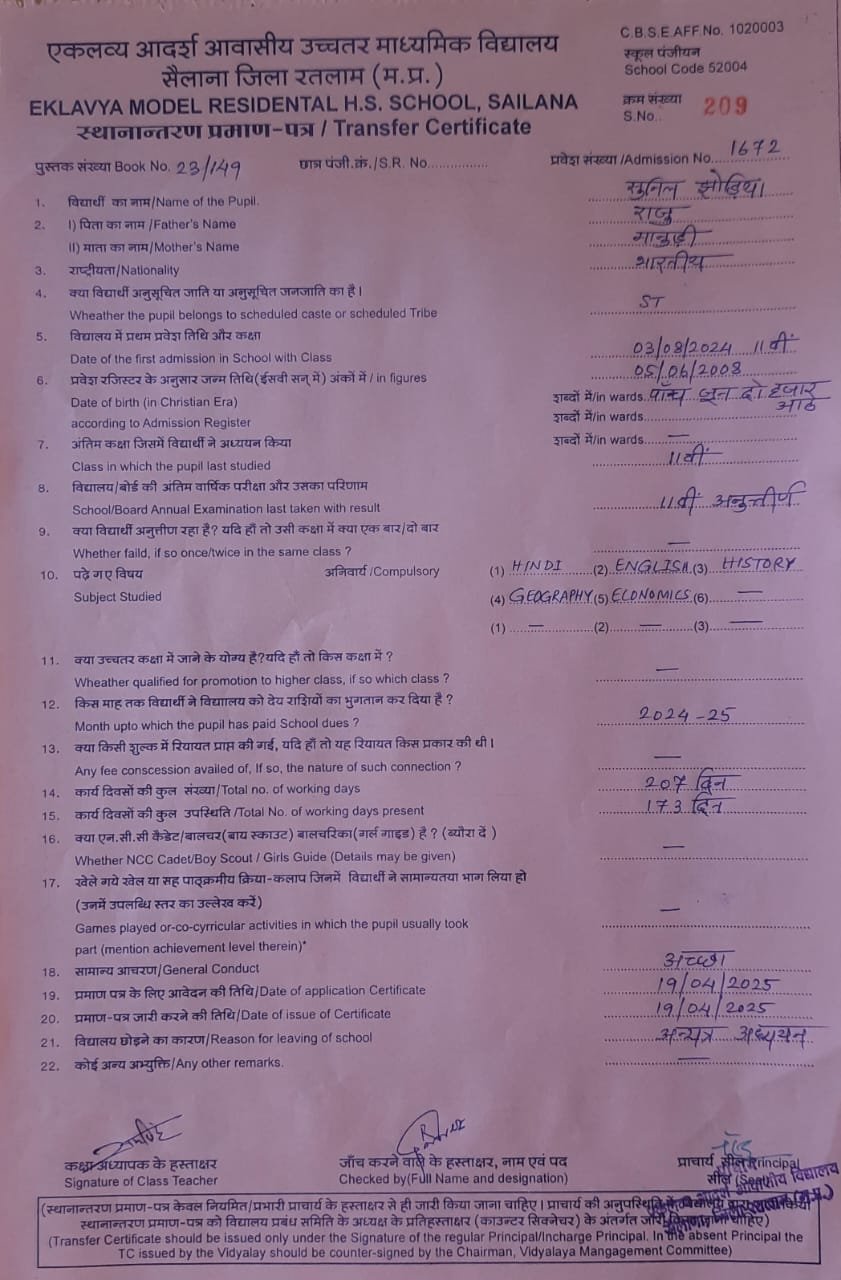 एकलव्य आदर्श आवासीय उच्चतर माध्यमिक विद्यालय
सैलाना जिला रतलाम (म.प्र.)
EKLAVYA MODEL RESIDENTAL H.S. SCHOOL, SAILANA
स्थानान्तरण प्रमाण-पत्र / Transfer Certificate
C.B.S.E AFF.No. 1020003
स्कूल पंजीयन
School Code 52004
क्रम संख्या
S.No.. 209
पुस्तक संख्या Book No. 23/149 छात्र पंजी.क्रं./S.R. No............... प्रवेश संख्या /Admission No. 1672
1. विद्यार्थी का नाम/Name of the Pupil. सुनिल झोड़िया
2. I) पिता का नाम /Father's Name राजु
II) माता का नाम/Mother's Name
3. राष्ट्रीयता/Nationality भारतीय
4. क्या विद्यार्थी अनुसूचित जाति या अनुसूचित जनजाति का है।
Wheather the pupil belongs to scheduled caste or scheduled Tribe ST
5. विद्यालय में प्रथम प्रवेश तिथि और कक्षा
Date of the first admission in School with Class 03/08/2024 11वीं
6. प्रवेश रजिस्टर के अनुसार जन्म तिथि(ईसवी सन् में) अंकों में / in figures 05/06/2008
Date of birth (in Christian Era) शब्दों में/in wards. पाँच जून दो हजार आठ
according to Admission Register शब्दों में/in wards.
7. अंतिम कक्षा जिसमें विद्यार्थी ने अध्ययन किया शब्दों में/in wards. —
Class in which the pupil last studied 11वीं
8. विद्यालय/बोर्ड की अंतिम वार्षिक परीक्षा और उसका परिणाम
School/Board Annual Examination last taken with result 11वीं अनुत्तीर्ण
9. क्या विद्यार्थी अनुत्तीण रहा है? यदि हाँ तो उसी कक्षा में क्या एक बार/दो बार
Whether faild, if so once/twice in the same class ? —
10. पढ़े गए विषय अनिवार्य /Compulsory (1) HINDI (2) ENGLISH (3) HISTORY
Subject Studied (4) GEOGRAPHY (5) ECONOMICS (6) —
(1) — (2) — (3) —
11. क्या उच्चतर कक्षा में जाने के योग्य है?यदि हाँ तो किस कक्षा में ?
Wheather qualified for promotion to higher class, if so which class ? —
12. किस माह तक विद्यार्थी ने विद्यालय को देय राशियों का भुगतान कर दिया है ?
Month upto which the pupil has paid School dues ? 2024-25
13. क्या किसी शुल्क में रियायत प्राप्त की गई, यदि हाँ तो यह रियायत किस प्रकार की थी।
Any fee conscession availed of, If so, the nature of such connection ? —
14. कार्य दिवसों की कुल संख्या/Total no. of working days 207 दिन
15. कार्य दिवसों की कुल उपस्थिति /Total No. of working days present 173 दिन
16. क्या एन.सी.सी कैडेट/बालचर(बाय स्काउट) बालचरिका(गर्ल गाइड) है ? (ब्यौरा दें )
Whether NCC Cadet/Boy Scout / Girls Guide (Details may be given) —
17. खेले गये खेल या सह पाठ्क्रमीय क्रिया-कलाप जिनमें विद्यार्थी ने सामान्यतया भाग लिया हो
(उनमें उपलब्धि स्तर का उल्लेख करें) —
Games played or-co-cyrricular activities in which the pupil usually took
part (mention achievement level therein)*
18. सामान्य आचरण/General Conduct अच्छा
19. प्रमाण पत्र के लिए आवेदन की तिथि/Date of application Certificate 19/04/2025
20. प्रमाण-पत्र जारी करने की तिथि/Date of issue of Certificate 19/04/2025
21. विद्यालय छोड़ने का कारण/Reason for leaving of school अन्यत्र अध्ययन
22. कोई अन्य अभ्युक्ति/Any other remarks. —
कक्षा अध्यापक के हस्ताक्षर
Signature of Class Teacher
जाँच करने वाले के हस्ताक्षर, नाम एवं पद
Checked by(Full Name and designation)
प्राचार्य सील Principal
सील (Seal)
(स्थानान्तरण प्रमाण-पत्र केवल नियमित/प्रभारी प्राचार्य के हस्ताक्षर से ही जारी किया जाना चाहिए। प्राचार्य की अनुपस्थिति में
स्थानान्तरण प्रमाण-पत्र को विद्यालय प्रबंध समिति के अध्यक्ष के प्रतिहस्ताक्षर (काउन्टर सिक्नेचर) के अंतर्गत जारी किया जाना चाहिए)
(Transfer Certificate should be issued only under the Signature of the regular Principal/Incharge Principal. In the absent Principal the
TC issued by the Vidyalay should be counter-signed by the Chairman, Vidyalaya Mangagement Committee)